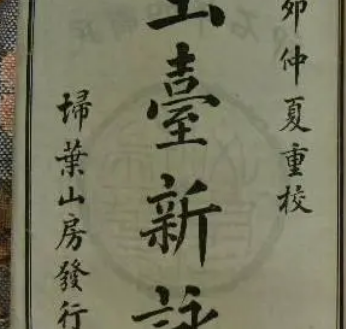 卯仲夏重校
玉臺新詠
埽葉山房發行